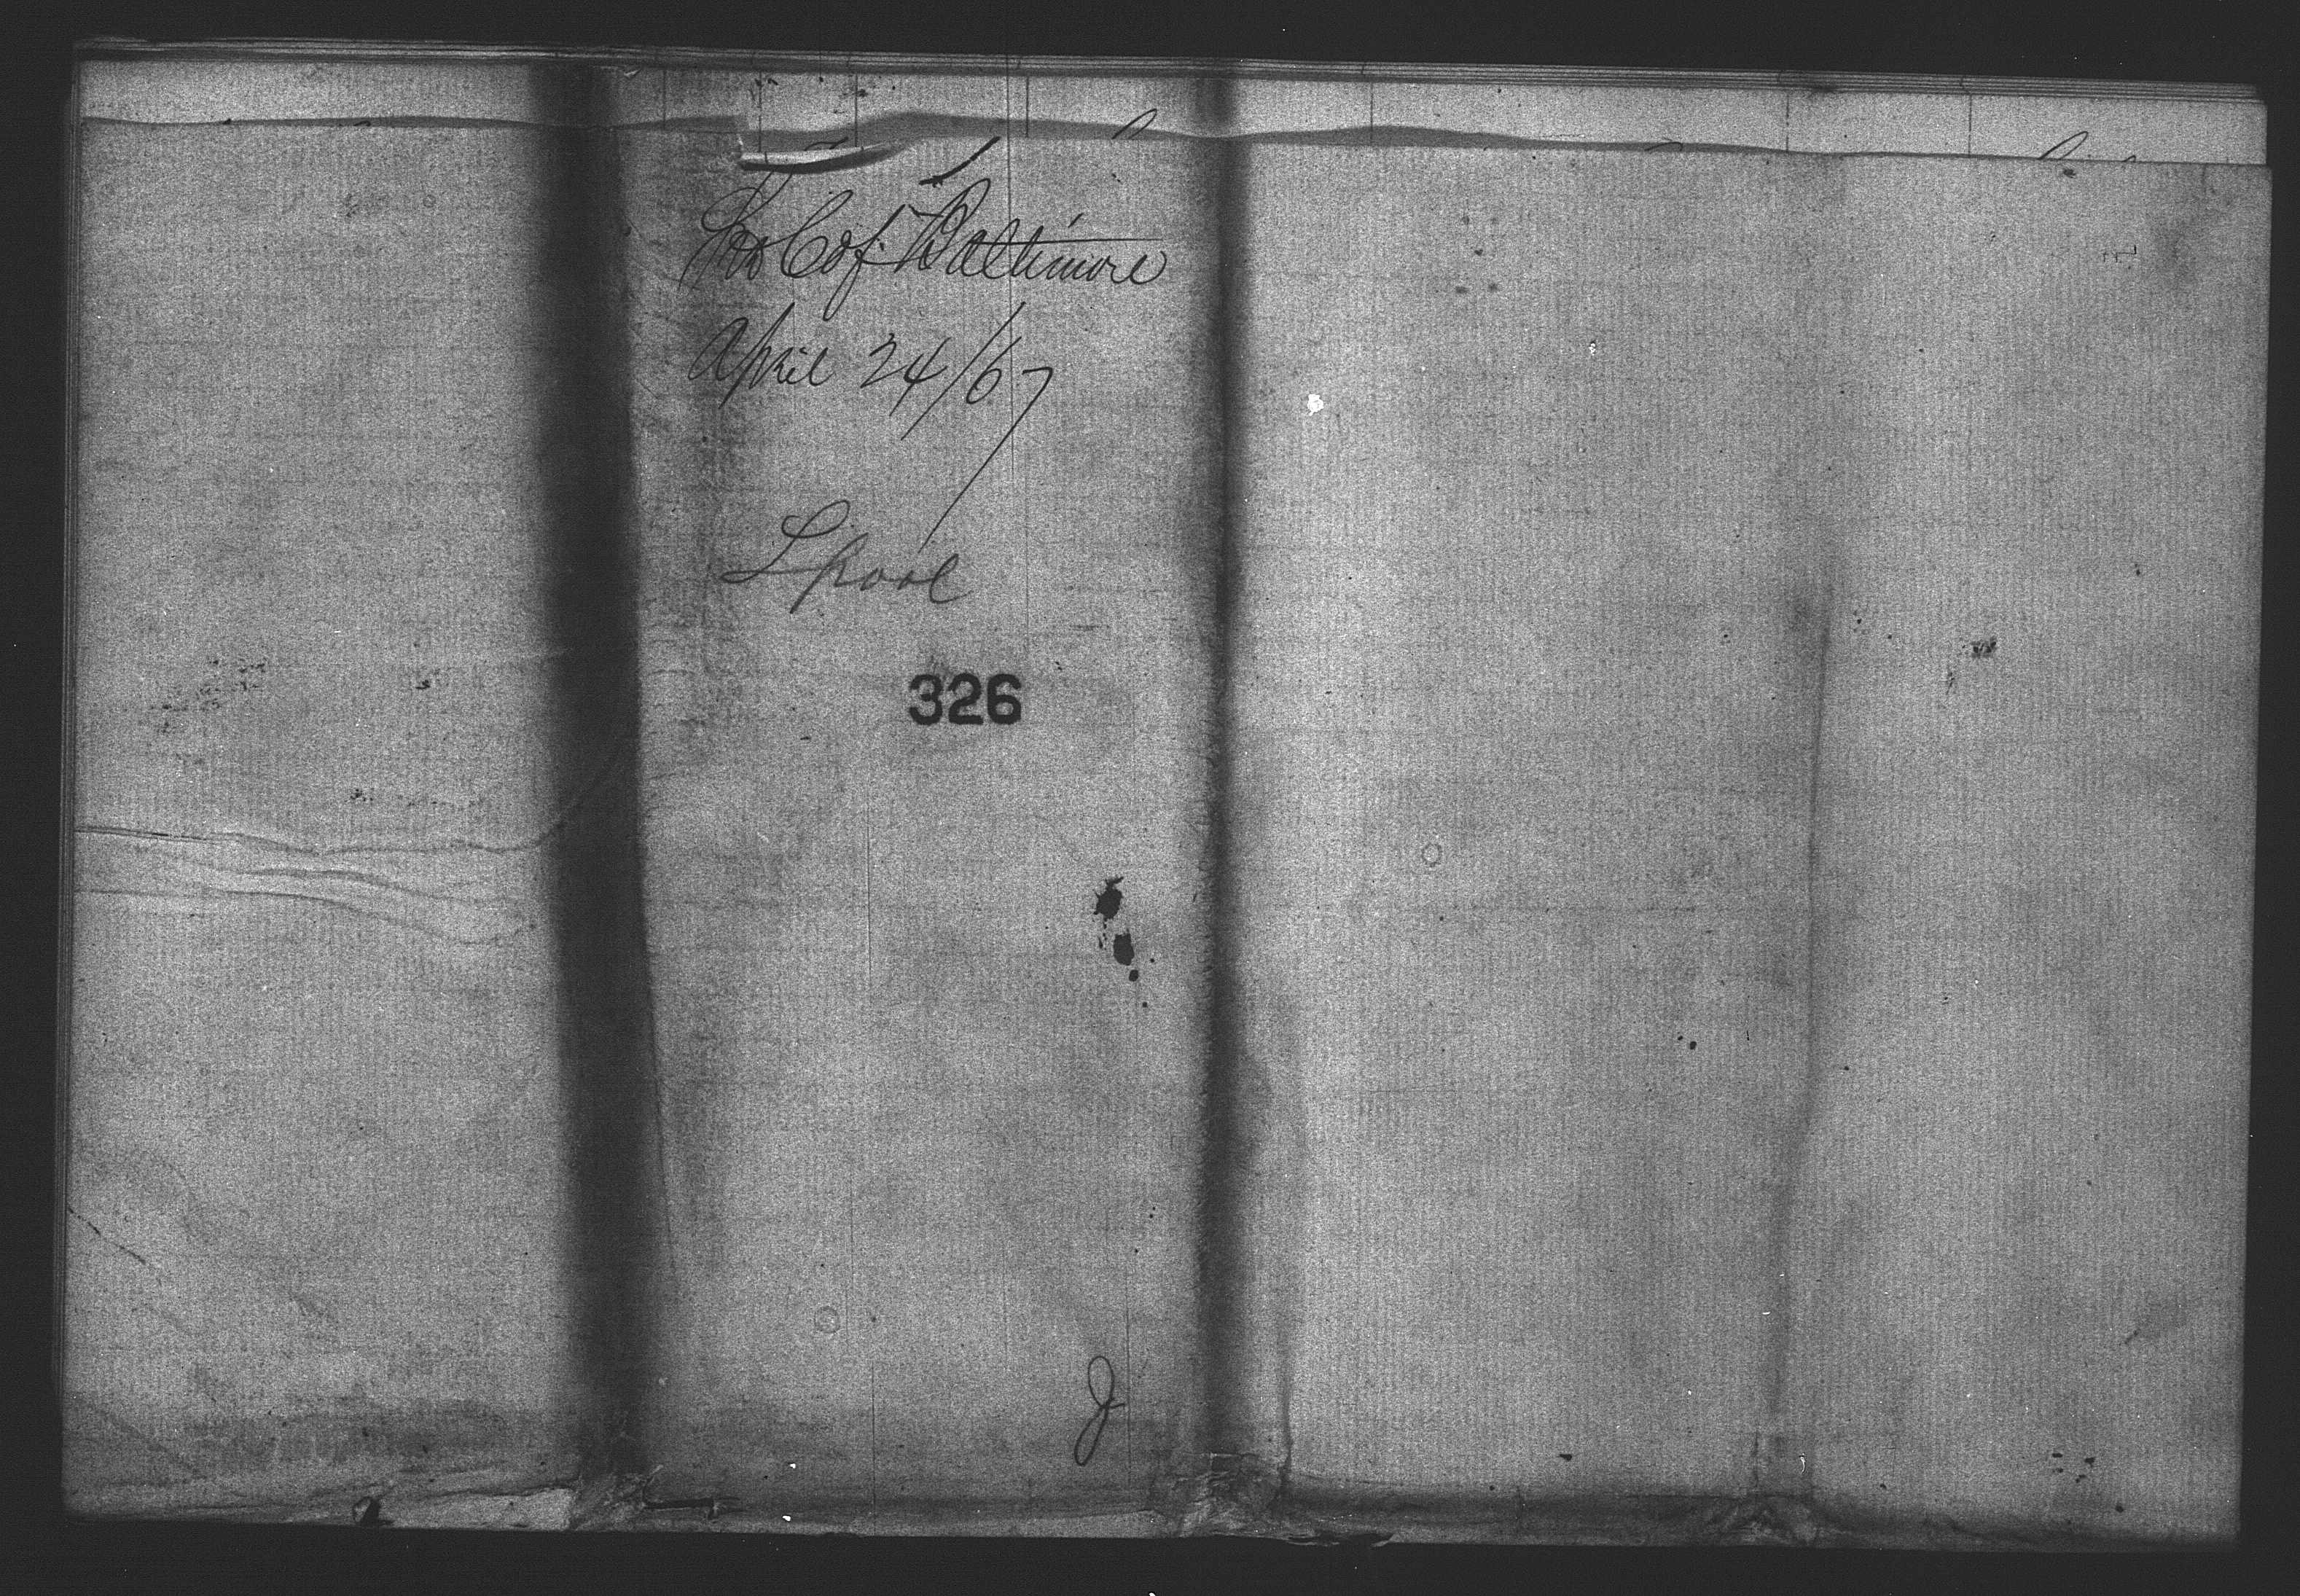 C of Baltimore
April 24/67
Lpool
326
J